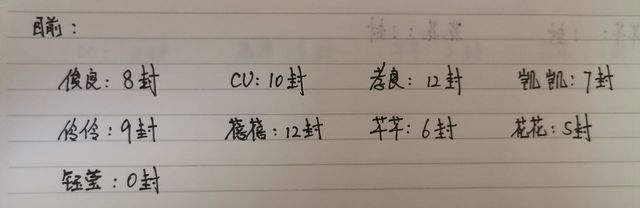 目前：
俊良：8封 CU：10封 孝良：12封 凯凯：7封
伶伶：9封 蓓蓓：12封 芊芊：6封 花花：5封
钰莹：0封